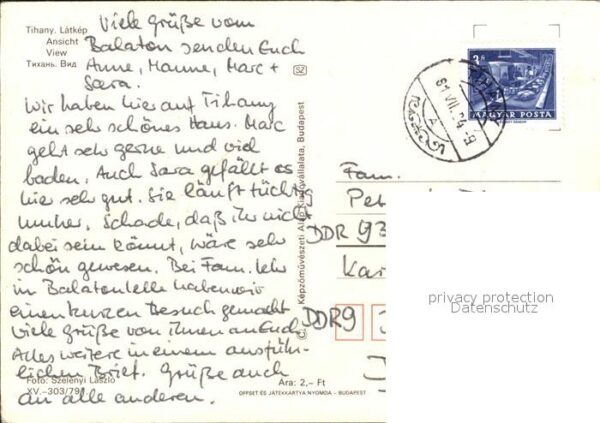 Tihany. Látkép
Ansicht
View
Тихань. Вид
Viele Grüße vom
Balaton senden Euch
Anne, Hanne, Marc +
Sara.
Wir haben hier auf Tihany
ein sehr schönes Haus. Marc
geht sehr gerne und viel
baden. Auch Sara gefällt es
hier sehr gut. Sie läuft tüchtig
umher. Schade, daß ihr nicht
dabei sein könnt, wäre sehr
schön gewesen. Bei Fam.
in Balatonlelle haben wir
einen kurzen Besuch gemacht
Viele Grüße von ihnen an Euch
Alles weitere in einem ausführ-
lichen Brief. Grüße auch
an alle anderen.
Foto: Szelényi László
XV.-303/791
SZ
Képzőművészeti Alap Kiadóvállalata, Budapest
Ára: 2,- Ft
OFFSET ÉS JÁTÉKKÁRTYA NYOMDA - BUDAPEST
3 Ft
MAGYAR POSTA
81 VII.
Fam.
Pet
DDR 93
Kar
DDR 9
privacy protection
Datenschutz